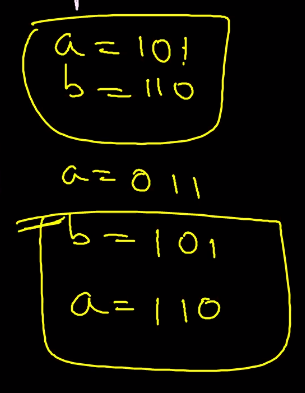 a = 101
b = 110
a = 011
b = 101
a = 110